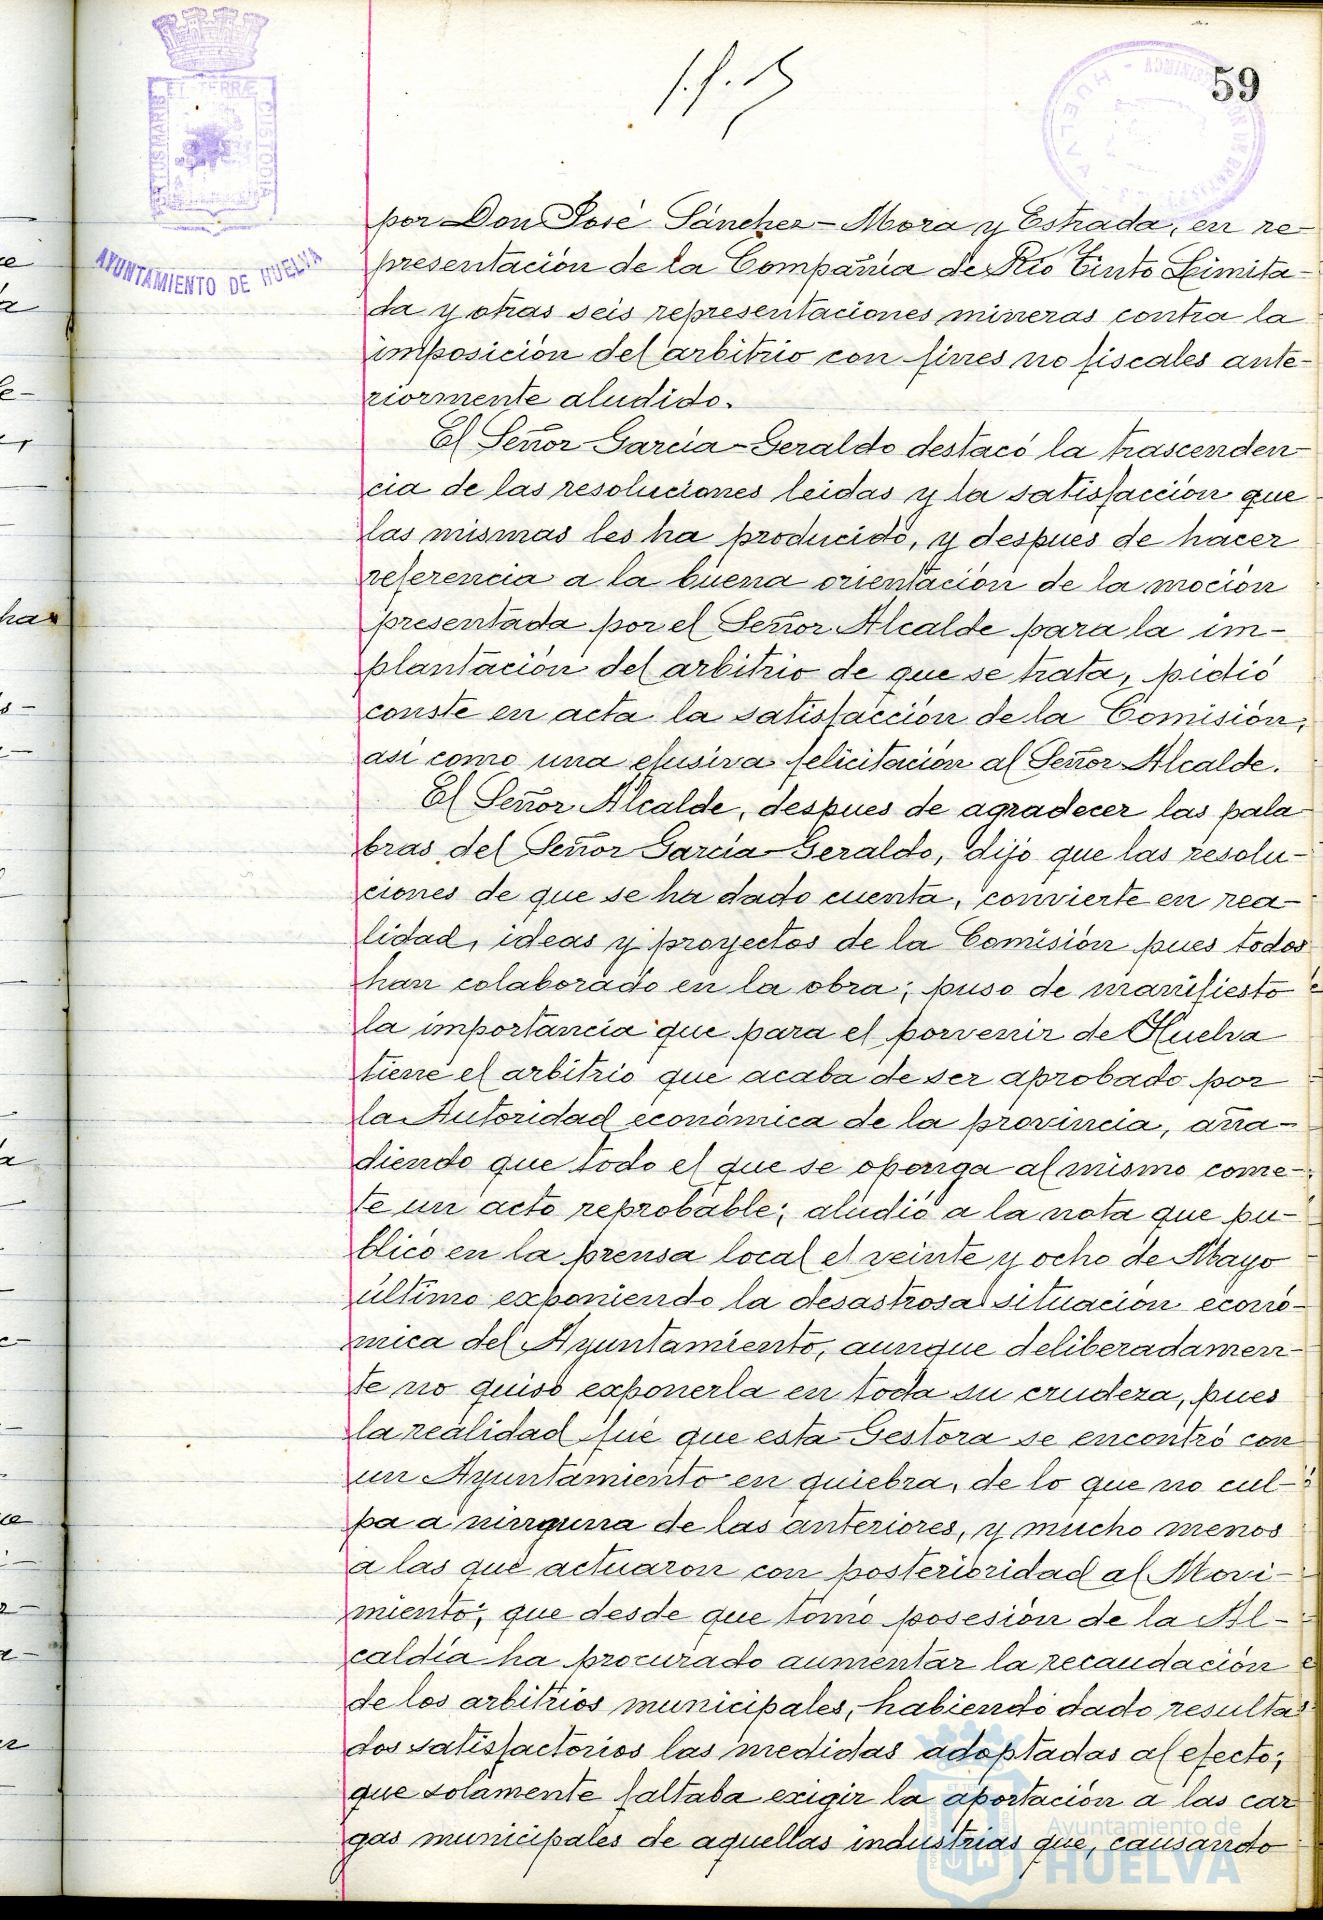 59
ET TERRÆ
PORTUS MARIS
CUSTODIA
AYUNTAMIENTO DE HUELVA
HUELVA
por Don José Sánchez-Mora y Estrada, en re-
presentación de la Compañía de Río Tinto Limita-
da y otras seis representaciones mineras contra la
imposición del arbitrio con fines no fiscales ante-
riormente aludido.
El Señor García-Geraldo destacó la trascenden-
cia de las resoluciones leidas y la satisfacción que
las mismas les ha producido, y despues de hacer
referencia a la buena orientación de la moción
presentada por el Señor Alcalde para la im-
plantación del arbitrio de que se trata, pidió
conste en acta la satisfacción de la Comisión,
así como una efusiva felicitación al Señor Alcalde.
El Señor Alcalde, despues de agradecer las pala-
bras del Señor García-Geraldo, dijo que las resolu-
ciones de que se ha dado cuenta, convierte en rea-
lidad, ideas y proyectos de la Comisión pues todos
han colaborado en la obra; puso de manifiesto
la importancia que para el porvenir de Huelva
tiene el arbitrio que acaba de ser aprobado por
la Autoridad económica de la provincia, aña-
diendo que todo el que se oponga al mismo come-
te un acto reprobable; aludió a la nota que pu-
blicó en la prensa local el veinte y ocho de Mayo
último exponiendo la desastrosa situación econó-
mica del Ayuntamiento, aunque deliberadamen-
te no quiso exponerla en toda su crudeza, pues
la realidad fué que esta Gestora se encontró con
un Ayuntamiento en quiebra, de lo que no cul-
pa a ninguna de las anteriores, y mucho menos
a las que actuaron con posterioridad al Movi-
miento; que desde que tomó posesión de la Al-
caldía ha procurado aumentar la recaudación
de los arbitrios municipales, habiendo dado resulta-
dos satisfactorios las medidas adoptadas al efecto;
que solamente faltaba exigir la aportación a las car
gas municipales de aquellas industrias que, causando
Ayuntamiento de
HUELVA